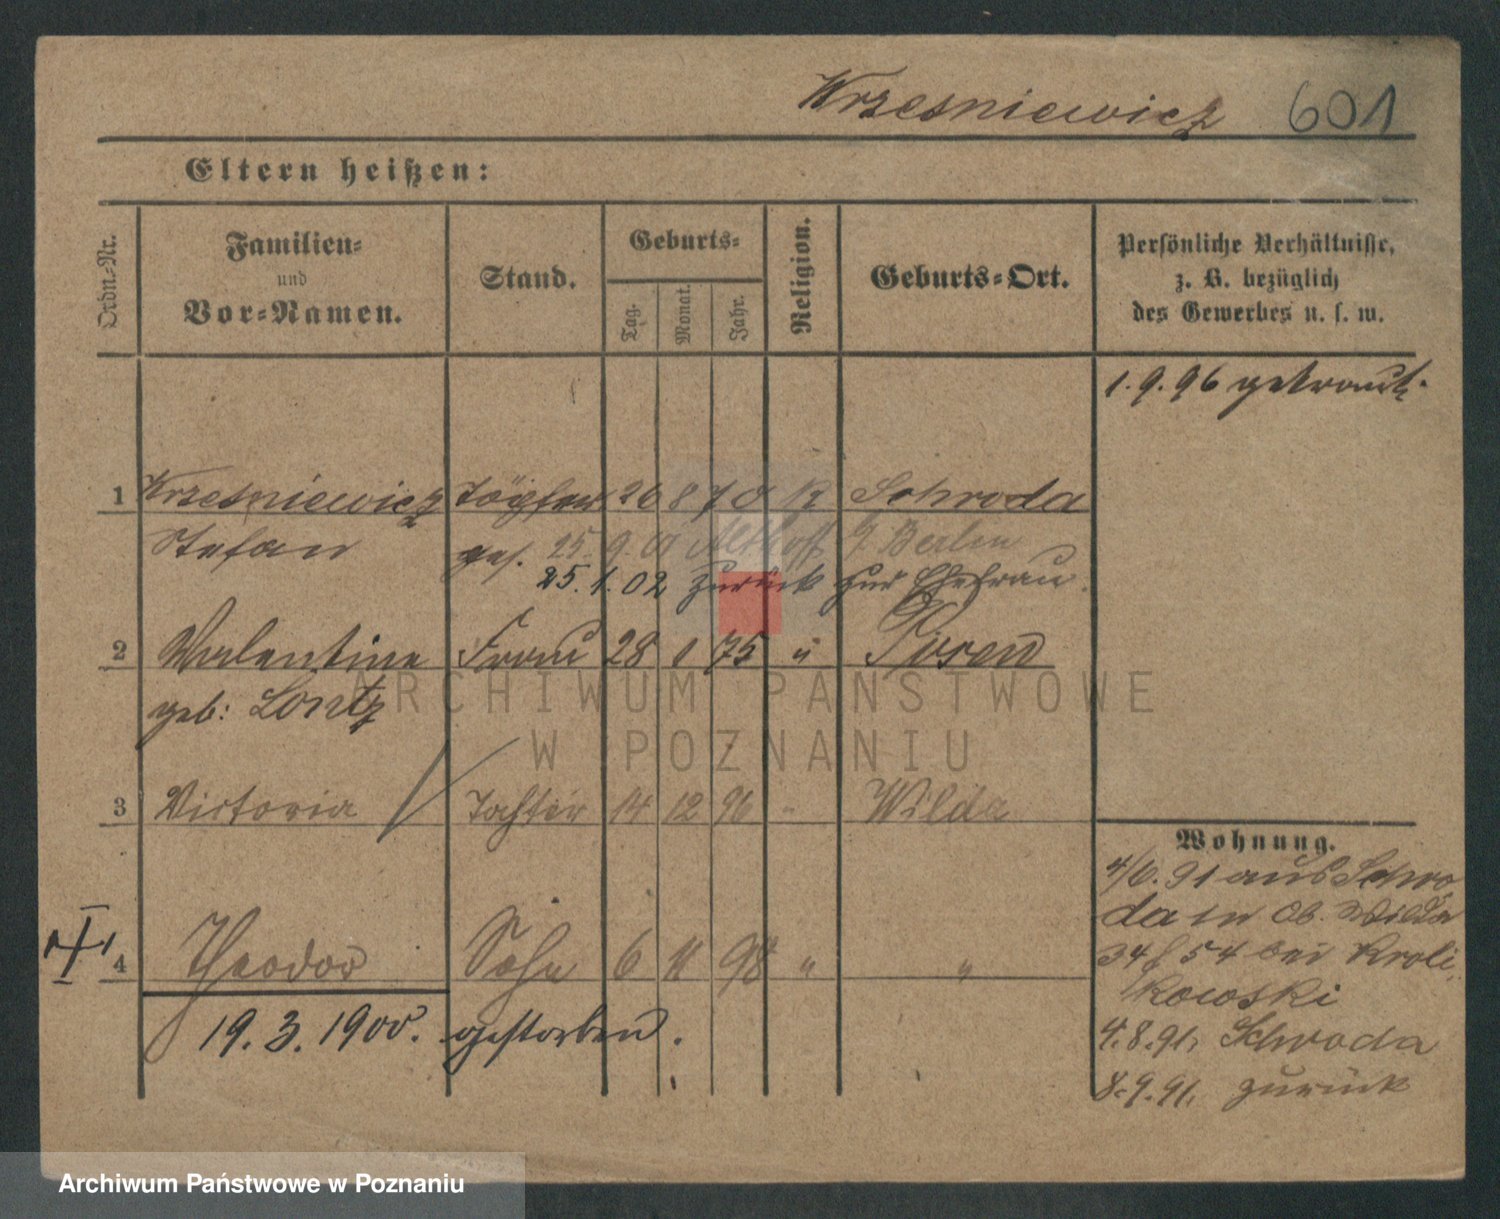 Wrzesniewicz 601
Eltern heißen:
Ordn.-Nr.
Familien-
und
Vor-Namen.
Stand.
Geburts-
Tag.
Monat.
Jahr.
Religion.
Geburts-Ort.
Persönliche Verhältnisse,
z. B. bezüglich
des Gewerbes u. s. w.
1. 9. 96 getraut.
1 Wrzesniewicz Töpfer 26 8 70 K Schroda
Stefan ges. 25. 9. 01 Althoff b. Berlin
25. 1. 02 zurück zur Ehefrau.
2 Valentine Frau 28 1 75 " Posen
geb: Lontz
3 Victoria Tochter 14 12 96 " Wilda
4 Theodor Sohn 6 11 98 " "
19. 3. 1900. gestorben.
Wohnung.
4/6. 91 aus Schro
da in Ob. Wilda
34 / 54 bei Kroli
kowski
4. 8. 91. Schroda
8. 9. 91. zurück
ARCHIWUM PAŃSTWOWE
W POZNANIU
Archiwum Państwowe w Poznaniu